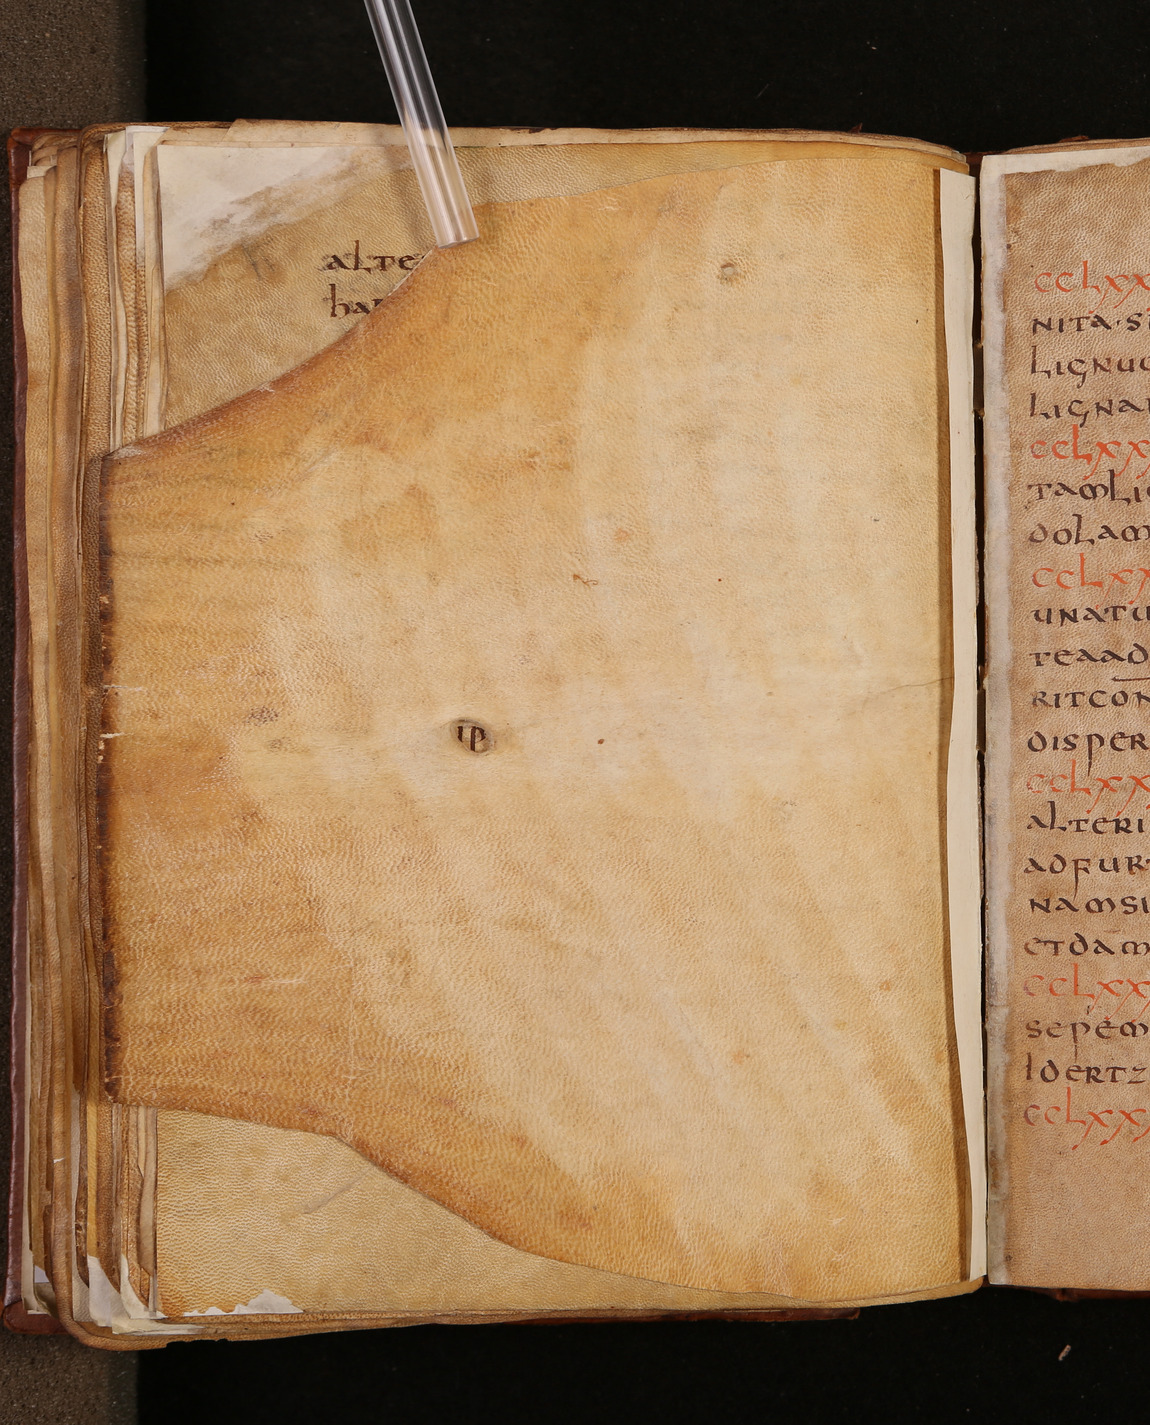 alte
ha
ip
cclxx
nita·s
lignu
ligna
cclxx
tamli
dolam
cclxx
unatu
teaad
ritcon
disper
cclxx
alteri
adfur
namsi
etdam
cclxx
sepem
idertz
cclxx